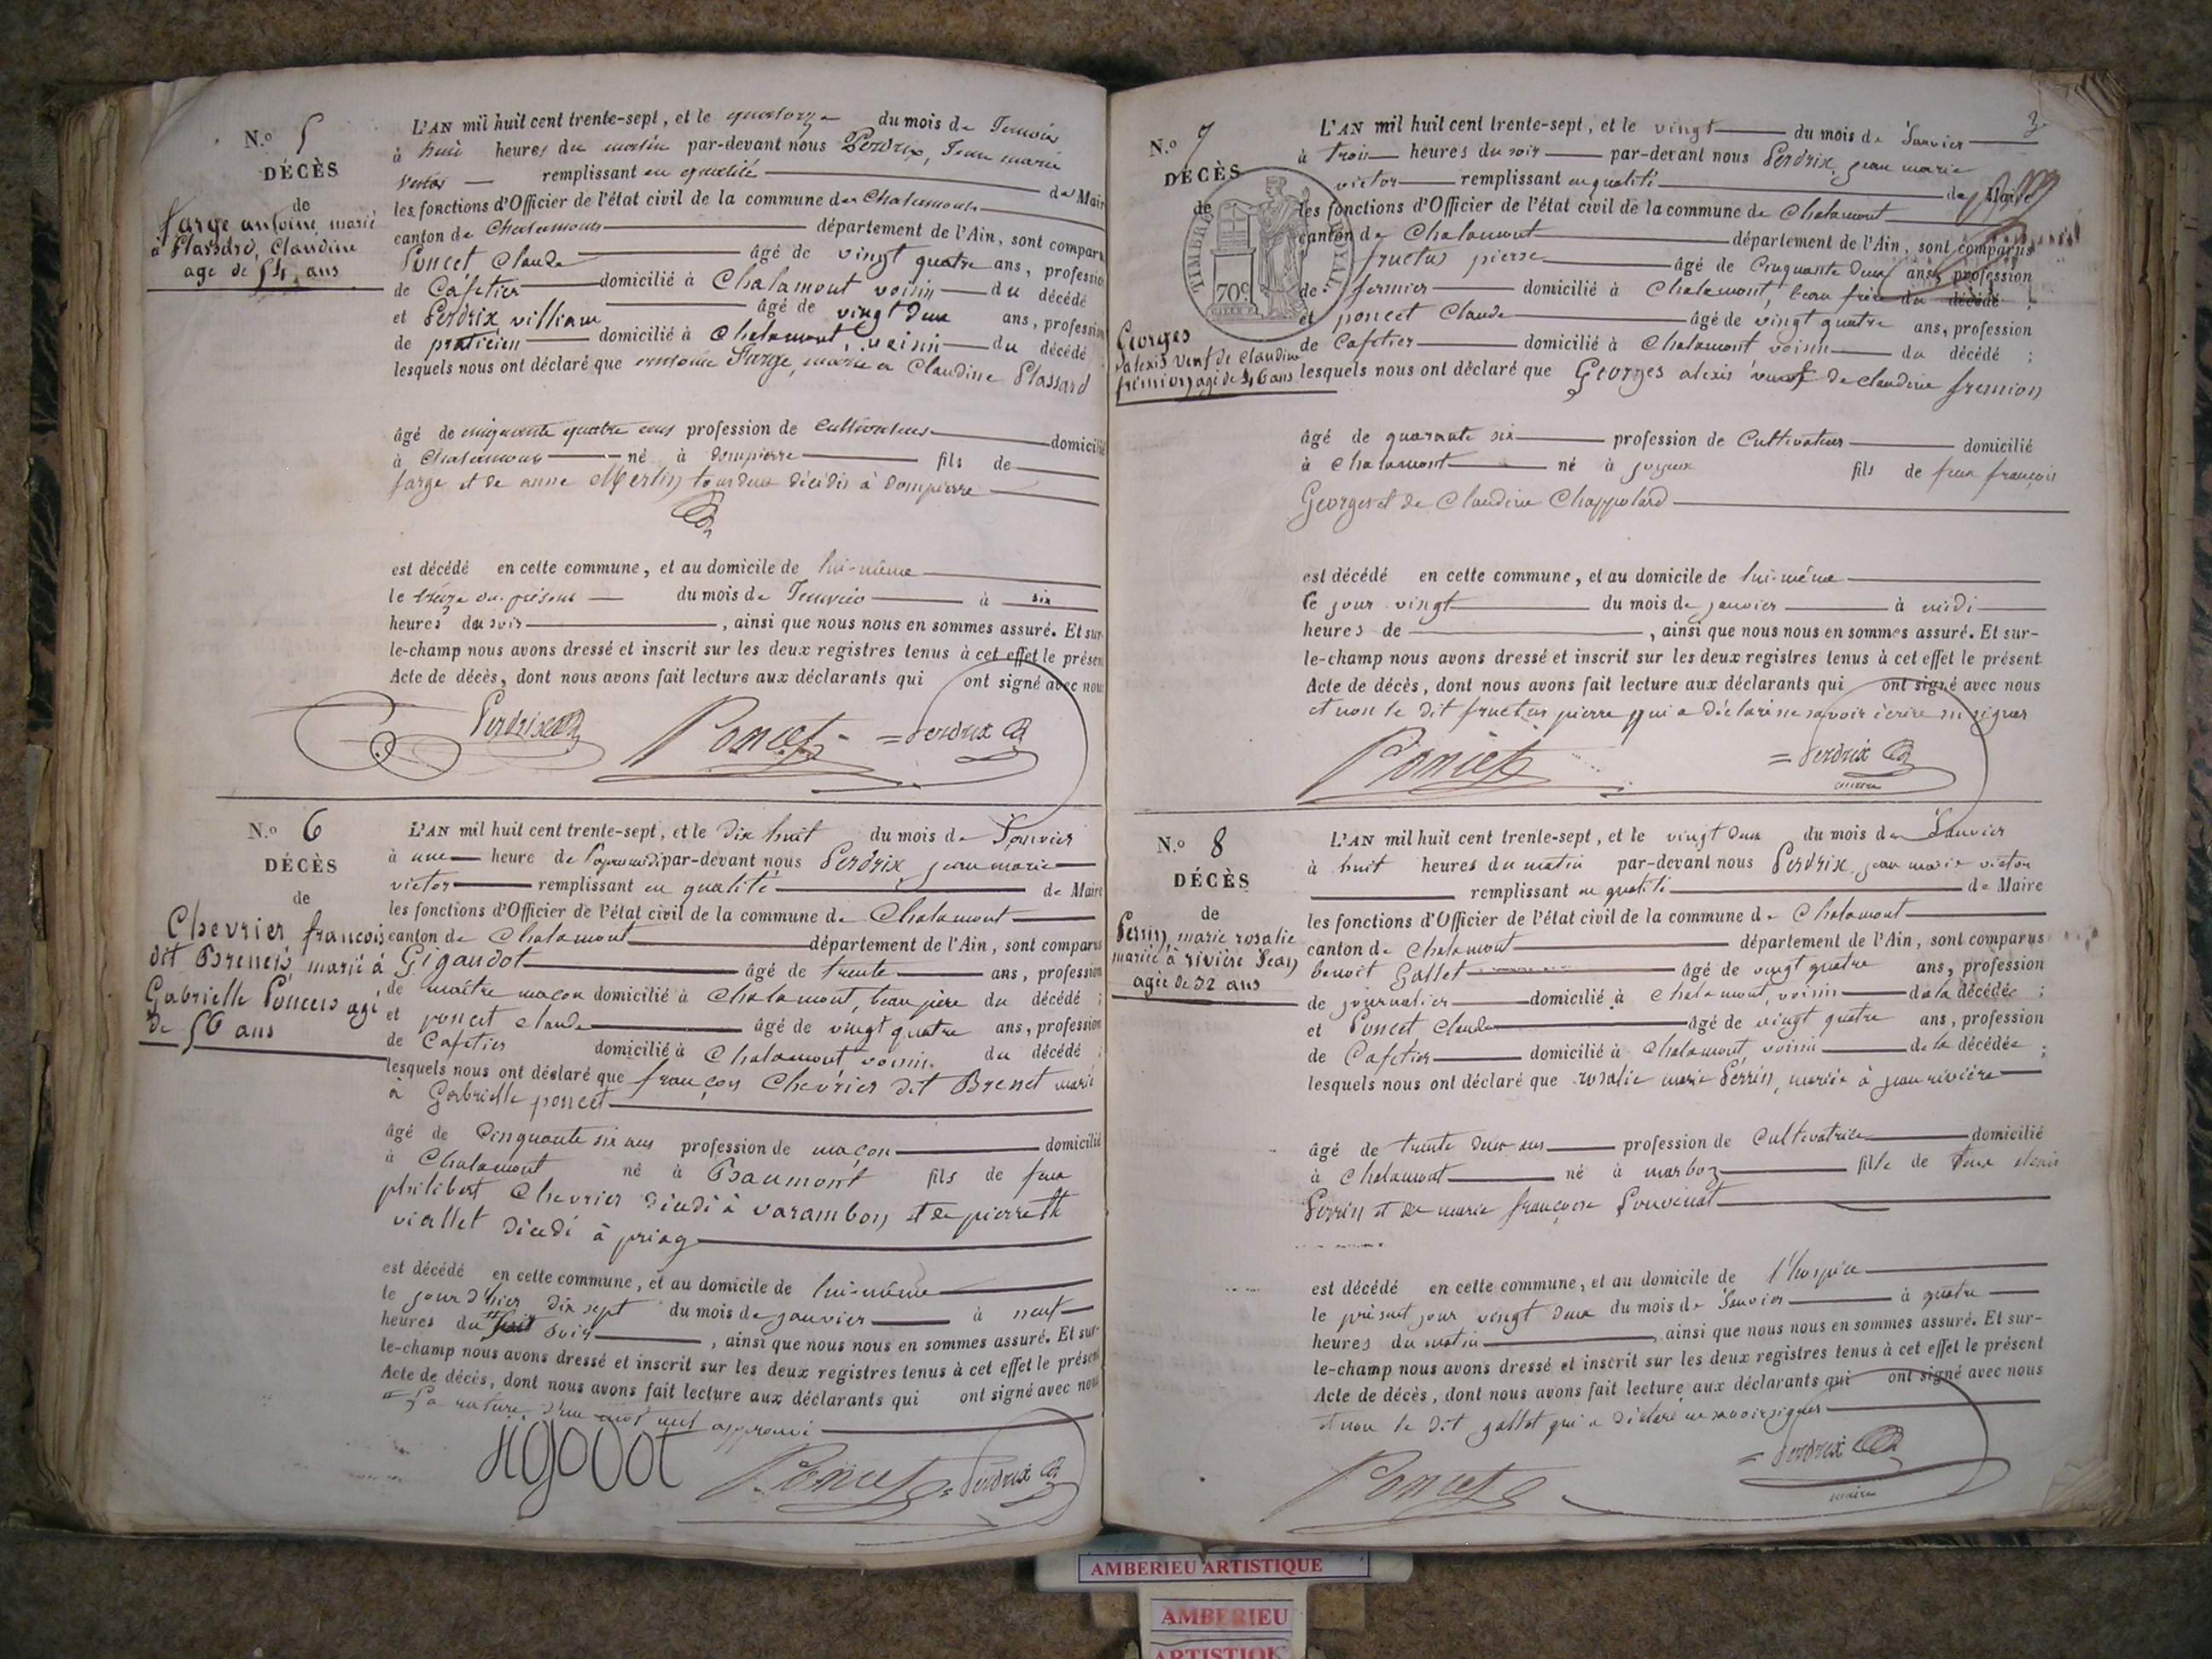 N.o 5
DÉCÈS
de
farge antoine marié
à Plassard, Claudine
age de 54 ans
L'AN mil huit cent trente-sept, et le quatorze du mois de Janvier
à huit heures du matin par-devant nous Perdrix, Jean marie
Victor remplissant en qualité de Maire
les fonctions d'Officier de l'état civil de la commune de Chalamont
canton de Chalamont département de l'Ain, sont comparus
Poncet Claude âgé de vingt quatre ans, profession
de Cafetier domicilié à Chalamont voisin du décédé
et Perdrix william âgé de vingt deux ans, profession
de praticien domicilié à Chalamont, voisin du décédé
lesquels nous ont déclaré que antoine Farge, marié a Claudine Plassard
âgé de cinquante quatre ans profession de cultivateur domicilié
à Chalamont né à Dompierre fils de
farge et de anne Merlin tous deux décédés à Dompierre
est décédé en cette commune, et au domicile de lui-même
le treize du présent du mois de Janvier à six
heures du soir, ainsi que nous nous en sommes assuré. Et sur-
le-champ nous avons dressé et inscrit sur les deux registres tenus à cet effet le présent
Acte de décès, dont nous avons fait lecture aux déclarants qui ont signé avec nous
Perdrix Poncet = Perdrix
N.o 6
DÉCÈS
de
Chevrier francois
dit Brenets, marié à
Gabrielle Poncets agé
de 56 ans
L'AN mil huit cent trente-sept, et le dix huit du mois de Janvier
à une heure de l'apresmidi par-devant nous Perdrix jean marie
victor remplissant en qualité de Maire
les fonctions d'Officier de l'état civil de la commune de Chalamont
canton de Chalamont département de l'Ain, sont comparus
Gigaudot âgé de trente ans, profession
de maître maçon domicilié à Chalamont, beau père du décédé ;
et poncet claude âgé de vingt quatre ans, profession
de Cafetier domicilié à Chalamont voisin. du décédé ;
lesquels nous ont déclaré que françois Chevrier dit Brenet marié
à Gabrielle poncet
âgé de Cinquante six ans profession de maçon domicilié
à Chalamont né à Beaumont fils de feux
philibert Chevrier décédé à varambon et de pierrette
viallet décédé à priay
est décédé en cette commune, et au domicile de lui-même
le jour d'hier dix sept du mois de janvier à neuf
heures du soir, ainsi que nous nous en sommes assuré. Et sur-
le-champ nous avons dressé et inscrit sur les deux registres tenus à cet effet le présent
Acte de décès, dont nous avons fait lecture aux déclarants qui ont signé avec nous
La rature d'un mot nul approuvé
Poncet = Perdrix
3
N.o 7
DÉCÈS
de
TIMBRE ROYAL
70c
Georges
alexis veuf de Claudine
fremion agé de 46 ans
L'AN mil huit cent trente-sept, et le vingt du mois de Janvier
à trois heures du soir par-devant nous Perdrix jean marie
victor remplissant en qualité de Maire
les fonctions d'Officier de l'état civil de la commune de Chalamont
canton de Chalamont département de l'Ain, sont comparus
fructus pierre âgé de Cinquante deux ans, profession
de fermier domicilié à Chalamont, beau frère du décédé ;
et poncet Claude âgé de vingt quatre ans, profession
de Cafetier domicilié à Chalamont voisin du décédé ;
lesquels nous ont déclaré que Georges alexis veuf de claudine fremion
âgé de quarante six profession de Cultivateur domicilié
à Chalamont né à joyeux fils de feux françois
Georges et de Claudine Chappolard
est décédé en cette commune, et au domicile de lui-même
le jour vingt du mois de janvier à midi
heures de , ainsi que nous nous en sommes assuré. Et sur-
le-champ nous avons dressé et inscrit sur les deux registres tenus à cet effet le présent
Acte de décès, dont nous avons fait lecture aux déclarants qui ont signé avec nous
et non le dit fructus pierre qui a déclaré ne savoir écrire ni signer
Poncet = Perdrix
maire
N.o 8
DÉCÈS
de
Perrin, marie rosalie
mariée à rivière Jean
agée de 32 ans
L'AN mil huit cent trente-sept, et le vingt deux du mois de Janvier
à huit heures du matin par-devant nous Perdrix jean marie victor
remplissant en qualité de Maire
les fonctions d'Officier de l'état civil de la commune de Chalamont
canton de Chalamont département de l'Ain, sont comparus
benoit Gallet âgé de vingt quatre ans, profession
de journalier domicilié à Chalamont, voisin de la décédée ;
et Poncet Claude âgé de vingt quatre ans, profession
de Cafetier domicilié à Chalamont voisin de la décédée ;
lesquels nous ont déclaré que rosalie marie Perrin, mariée à jean rivière
âgé de trente deux ans profession de Cultivatrice domicilié
à Chalamont né à marboz fille de feux denis
Perrin et de marie françoise Pouvenat
est décédé en cette commune, et au domicile de l'hospice
le présent jour vingt deux du mois de Janvier à quatre
heures du matin, ainsi que nous nous en sommes assuré. Et sur-
le-champ nous avons dressé et inscrit sur les deux registres tenus à cet effet le présent
Acte de décès, dont nous avons fait lecture aux déclarants qui ont signé avec nous
et non le dit gallet qui a déclaré ne savoir signer
Poncet = Perdrix
maire
AMBERIEU ARTISTIQUE
AMBERIEU
ARTISTIQUE